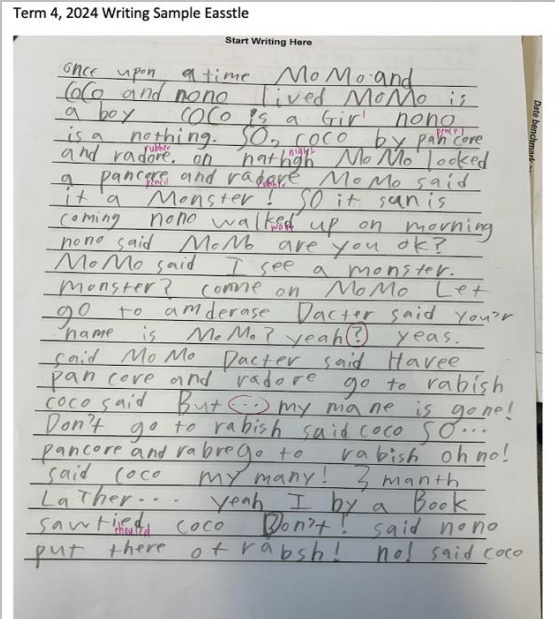 Term 4, 2024 Writing Sample Easstle
Start Writing Here
once upon a time MoMo and
CoCo and nono lived MoMo is
a boy CoCo is a Girl nono
is a nothing. SO, coco by pan core
pencil
and radore. on nathgh MoMo looked
rubber night
a pancore and radore MoMo said
pencil rubber
it a Monster! SO it sun is
coming nono walked up on morning
woke
nono said MoMo are you ok?
MoMo said I see a monster.
monster? comne on MoMo Let
go to amderase Dacter said you'r
name is MoMo? yeah? yeas.
said MoMo Dacter said Havee
pan core and radore go to rabish
coco said But ... my mane is gone!
Don't go to rabish said coco SO...
pancore and rabre go to rabish oh no!
said coco my many! 3 manth
LaTher... yeah I by a Book
sawtied coco Don't! said nono
shouted
put there of rabsh! no! said coco
Date benchmark